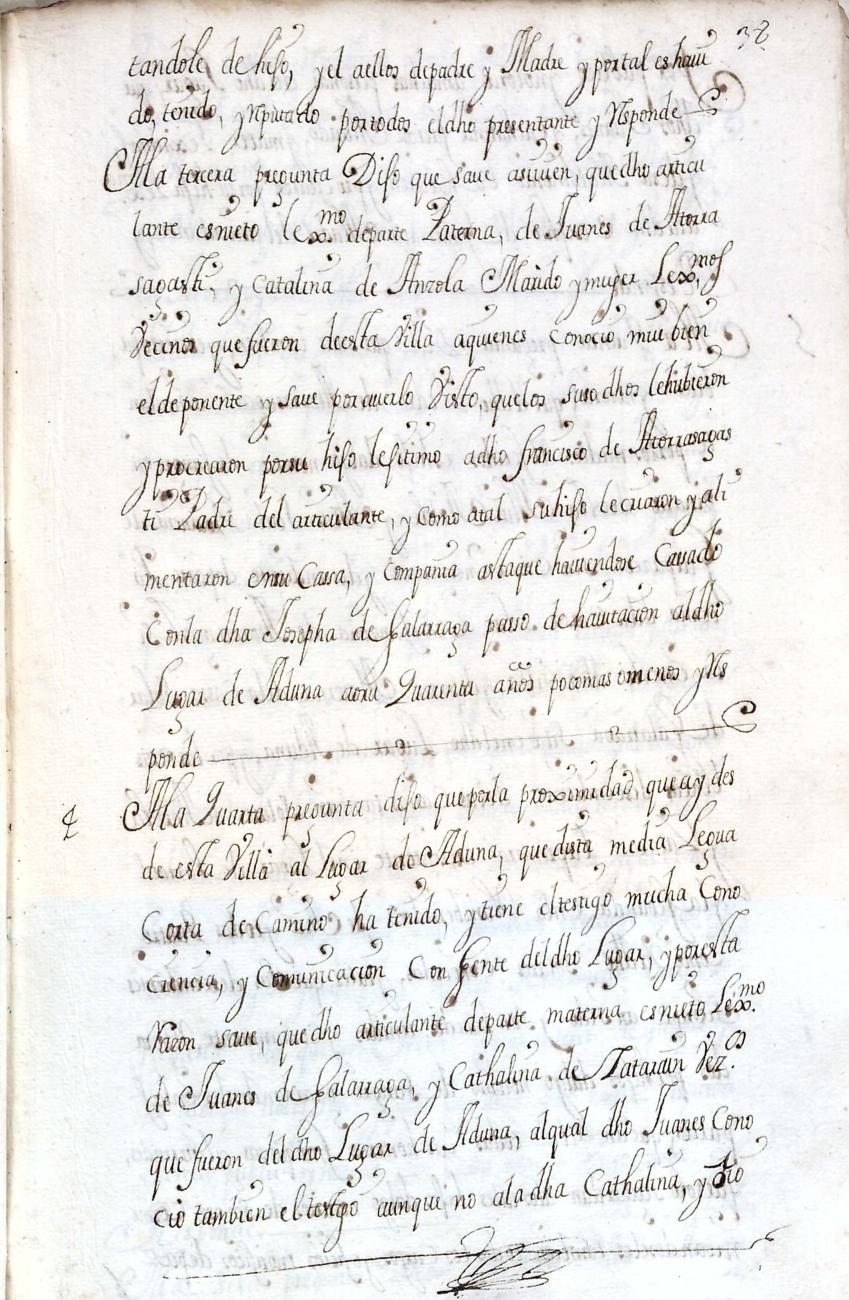 38
tandole de hiso, y el aellos depadre y Madre y portal es havi
do, tenido, y Rputado portodos eldho presentante y Rsponde
Ala tercera pregunta Diso que save asiuien, quedho articu
lante esnieto lexmo departe Paterna, de Juanes de Atorra
sagasti, y Catalina de Anzola Marido ymuger Lexmos
Vecinos que fueron deesta Villa aquienes conocio mui bien
eldeponente y save poraverlo Visto, quelos susodhos lehubieron
yprocrearon porsu hiso lesitimo adho francisco de Atorrasagas
ti Padre del articulante, y como atal su hiso le criaron y ali
mentaron ensu Cassa, y Compania astaque haviendose Cassado
Conla dha Josepha de Galarraga passo de havitacion aldho
Lugar de Aduna aora Quarenta años pocomas omenos y Rs
ponde
4 Ala Quarta pregunta diso que porla proximidad que ay des
de esta Villa al Lugar de Aduna, que dista media Legua
Corta de Camino ha tenido, ytiene eltestigo mucha Cono
ciencia, y Comunicacion Con Gente deldho Lugar, yporesta
Razon save, quedho articulante departe materna esnieto Lexmo.
de Juanes de Galarraga, y Cathalina de Zatarain Vez.os
que fueron deldho Lugar de Aduna, alqual dho Juanes Cono
cio tambien eltestigo aunque no ala dha Cathalina, y